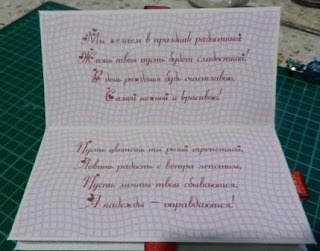 Мы желаем в праздник радостный:
Жизнь твоя пусть будет сладостной!
В день рождения будь счастливою,
Самой нежной и красивою!
Пусть цветёшь ты розой трепетной,
Ловишь радость с ветра лепетом,
Пусть мечты твои сбываются,
А надежды – оправдаются!